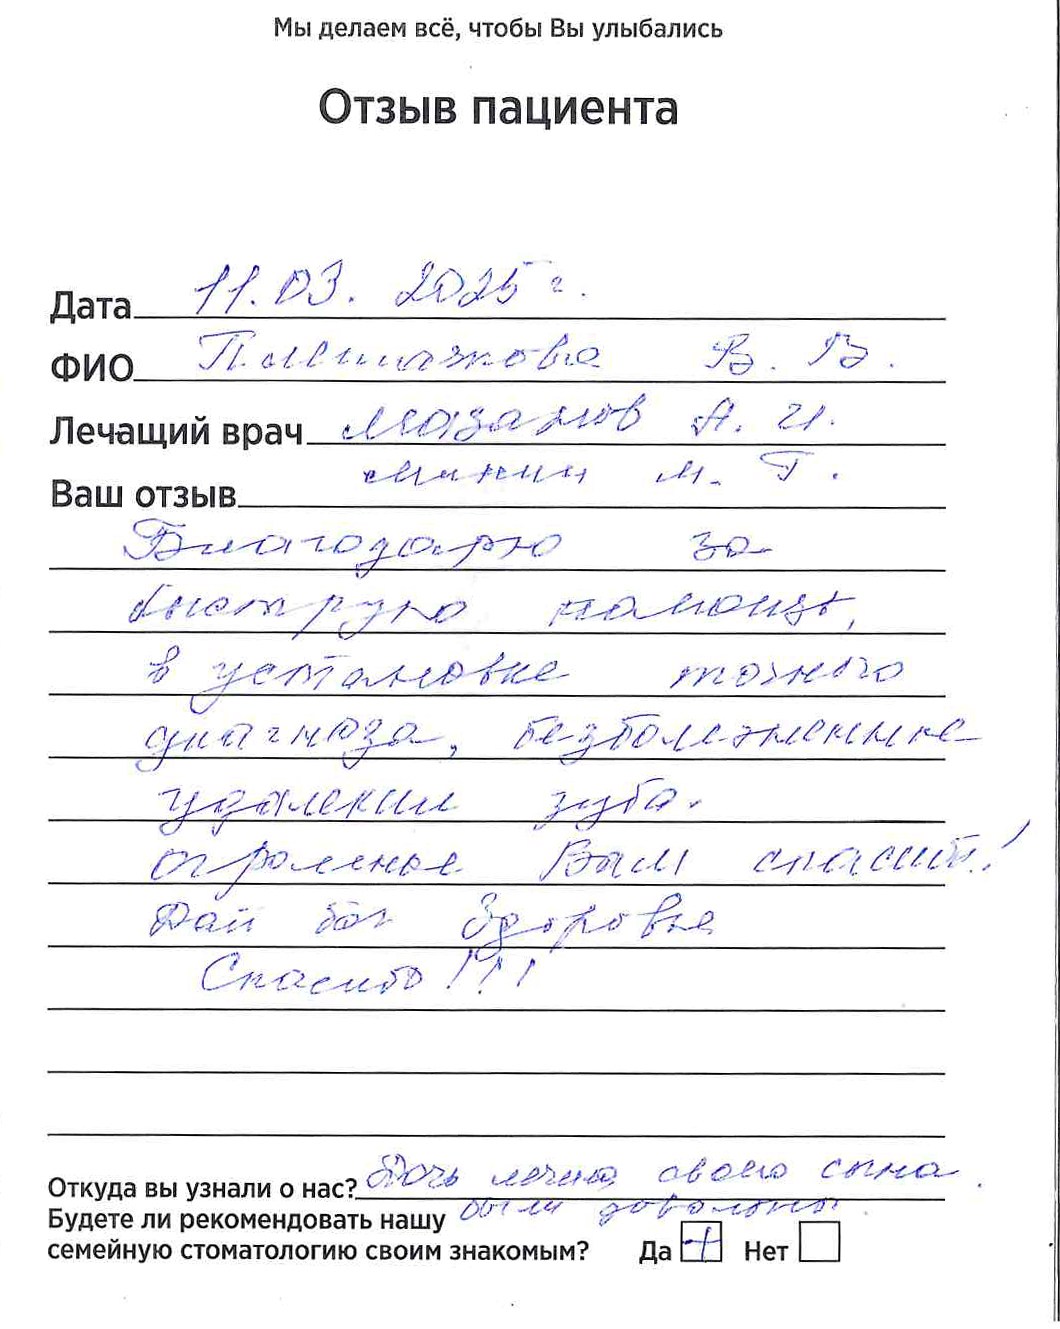 Мы делаем всё, чтобы Вы улыбались
Отзыв пациента
Дата 11.03.2025 г.
ФИО В. В.
Лечащий врач Мазанов А. И.
Ваш отзыв Минин М. Г.
Благодарю за
быструю помощь,
в установке точного
диагноза, безболезненные
удалении зуба.
огромное Вам спасибо!
Дай бог Здоровья
Спасибо!!!
Откуда вы узнали о нас? Дочь лечила своего сына.
были довольны.
Будете ли рекомендовать нашу
семейную стоматологию своим знакомым? Да + Нет